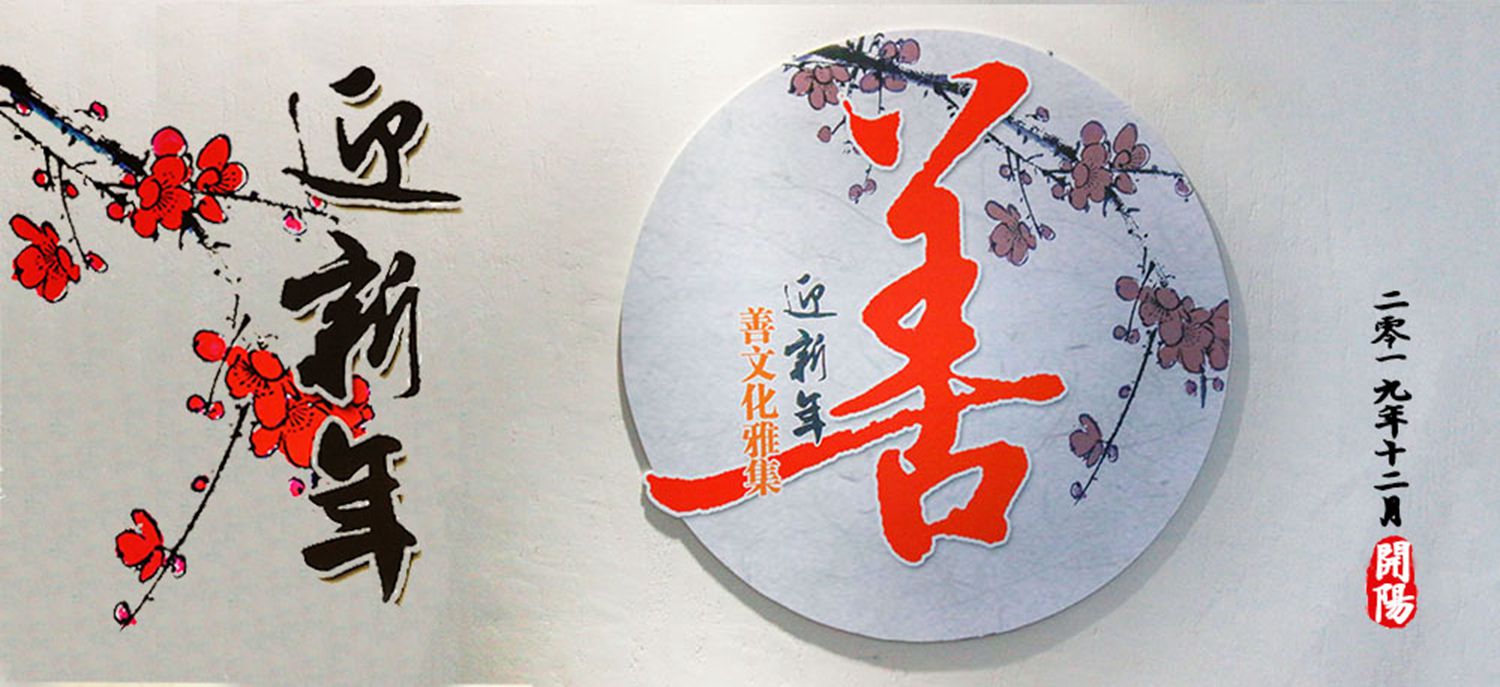 迎新年
善
迎新年
善文化雅集
二零一九年十二月
開陽